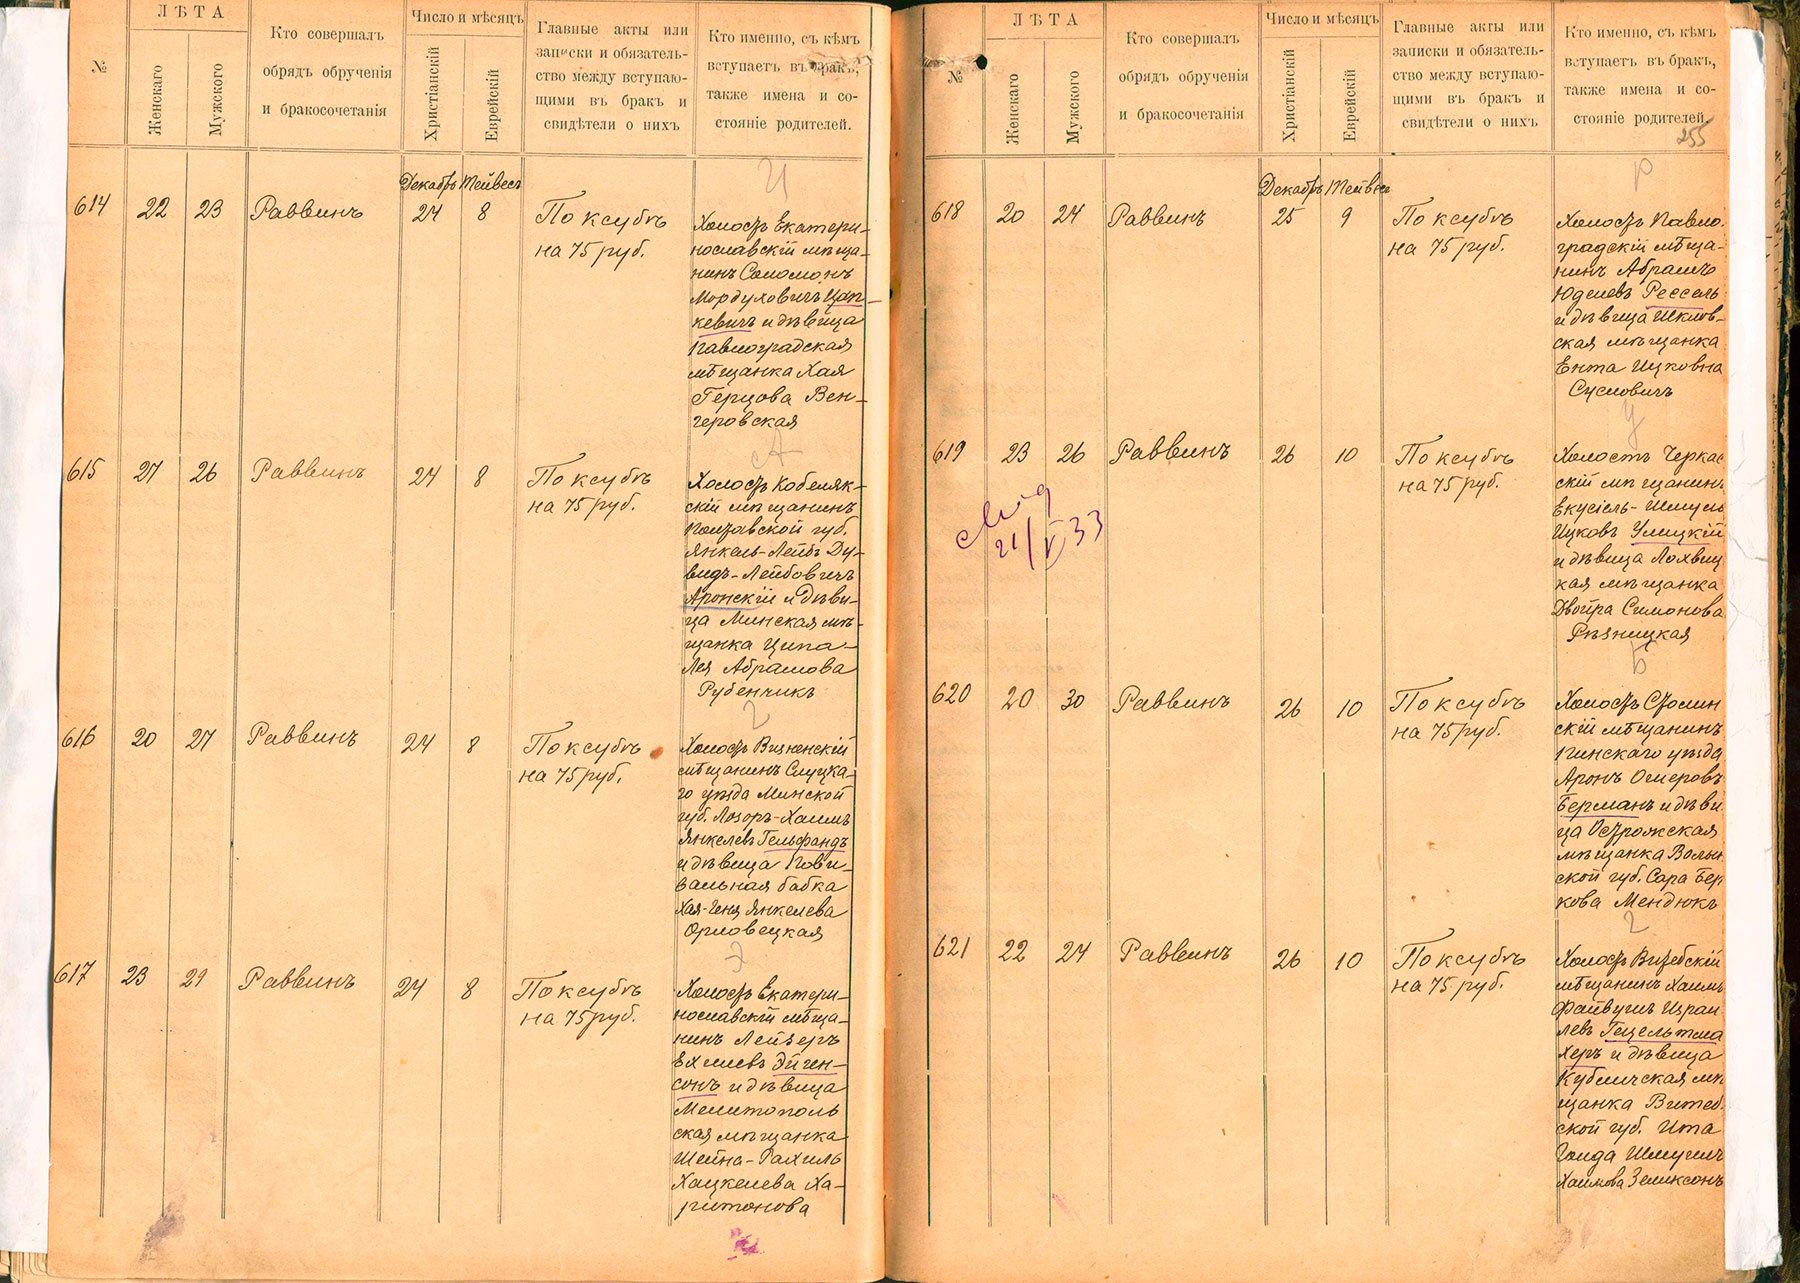 №
ЛѢТА
Женскаго
Мужского
Кто совершалъ
обрядъ обрученія
и бракосочетанія
Число и мѣсяцъ
Христіанскій
Еврейскій
Главные акты или
записки и обязатель-
ство между вступаю-
щими въ бракъ и
свидѣтели о нихъ
Кто именно, съ кѣмъ
вступаетъ въ бракъ,
также имена и со-
стояніе родителей.
Декабрь Тейвесъ
614 22 23 Раввинъ 24 8
По ксубѣ
на 75 руб.
Ц
Холостъ Екатери-
нославскій мѣща-
нинъ Соломонъ
Мордуховичъ Цап-
кевичъ и дѣвица
Павлоградская
мѣщанка Хая
Герцова Вен-
геровская
615 27 26 Раввинъ 24 8
По ксубѣ
на 75 руб.
А
Холостъ Кобеляк-
скій мѣщанинъ
Полтавской губ.
Янкель-Лейбъ Ду-
видъ-Лейбовичъ
Аронскій и дѣви-
ца Минская мѣ-
щанка Ципа-
Лея Абрамова
Рубенчикъ
616 20 27 Раввинъ 24 8
По ксубѣ
на 75 руб.
Г
Холостъ Визненскій
мѣщанинъ Слуцка-
го уѣзда Минской
губ. Лозоръ-Хаимъ
Янкелевъ Гельфандъ
и дѣвица Пови-
вальная бабка
Хая-Геня Янкелева
Орловецкая
617 23 29 Раввинъ 24 8
По ксубѣ
на 75 руб.
Э
Холостъ Екатери-
нославскій мѣща-
нинъ Лейзеръ
Ехилевъ Эйген-
сонъ и дѣвица
Мелитополь
ская мѣщанка
Шейна-Рахиль
Хацкелева Ха-
ритонова
№
ЛѢТА
Женскаго
Мужского
Кто совершалъ
обрядъ обрученія
и бракосочетанія
Число и мѣсяцъ
Христіанскій
Еврейскій
Главные акты или
записки и обязатель-
ство между вступаю-
щими въ бракъ и
свидѣтели о нихъ
Кто именно, съ кѣмъ
вступаетъ въ бракъ,
также имена и со-
стояніе родителей.
255
Декабрь Тейвесъ
618 20 24 Раввинъ 25 9
По ксубѣ
на 75 руб.
Р
Холостъ Павло-
градскій мѣща-
нинъ Абрамъ
Юделевъ Рессель
и дѣвица Шклов-
ская мѣщанка
Ента Ицковна
Сусловичъ
619 23 26 Раввинъ 26 10
По ксубѣ
на 75 руб.
У
Холостъ Черкас
скій мѣщанинъ
Екусіель-Шмуль
Ицковъ Улицкій
и дѣвица Лохвиц
кая мѣщанка
Двойра Симонова
Рѣзницкая
21/V 33
620 20 30 Раввинъ 26 10
По ксубѣ
на 75 руб.
Б
Холостъ Столин
скій мѣщанинъ
Пинскаго уѣзда
Аронъ Омеровъ
Берманъ и дѣви
ца Острожская
мѣщанка Волын
ской губ. Сара Бер
кова Мендюкъ
621 22 24 Раввинъ 26 10
По ксубѣ
на 75 руб.
Г
Холостъ Витебскій
мѣщанинъ Хаимъ
Файвушъ Израи
левъ Гецельтма
херъ и дѣвица
Кубличская мѣ
щанка Витеб.
ской губ. Ита
Хаимова Зеликсонъ